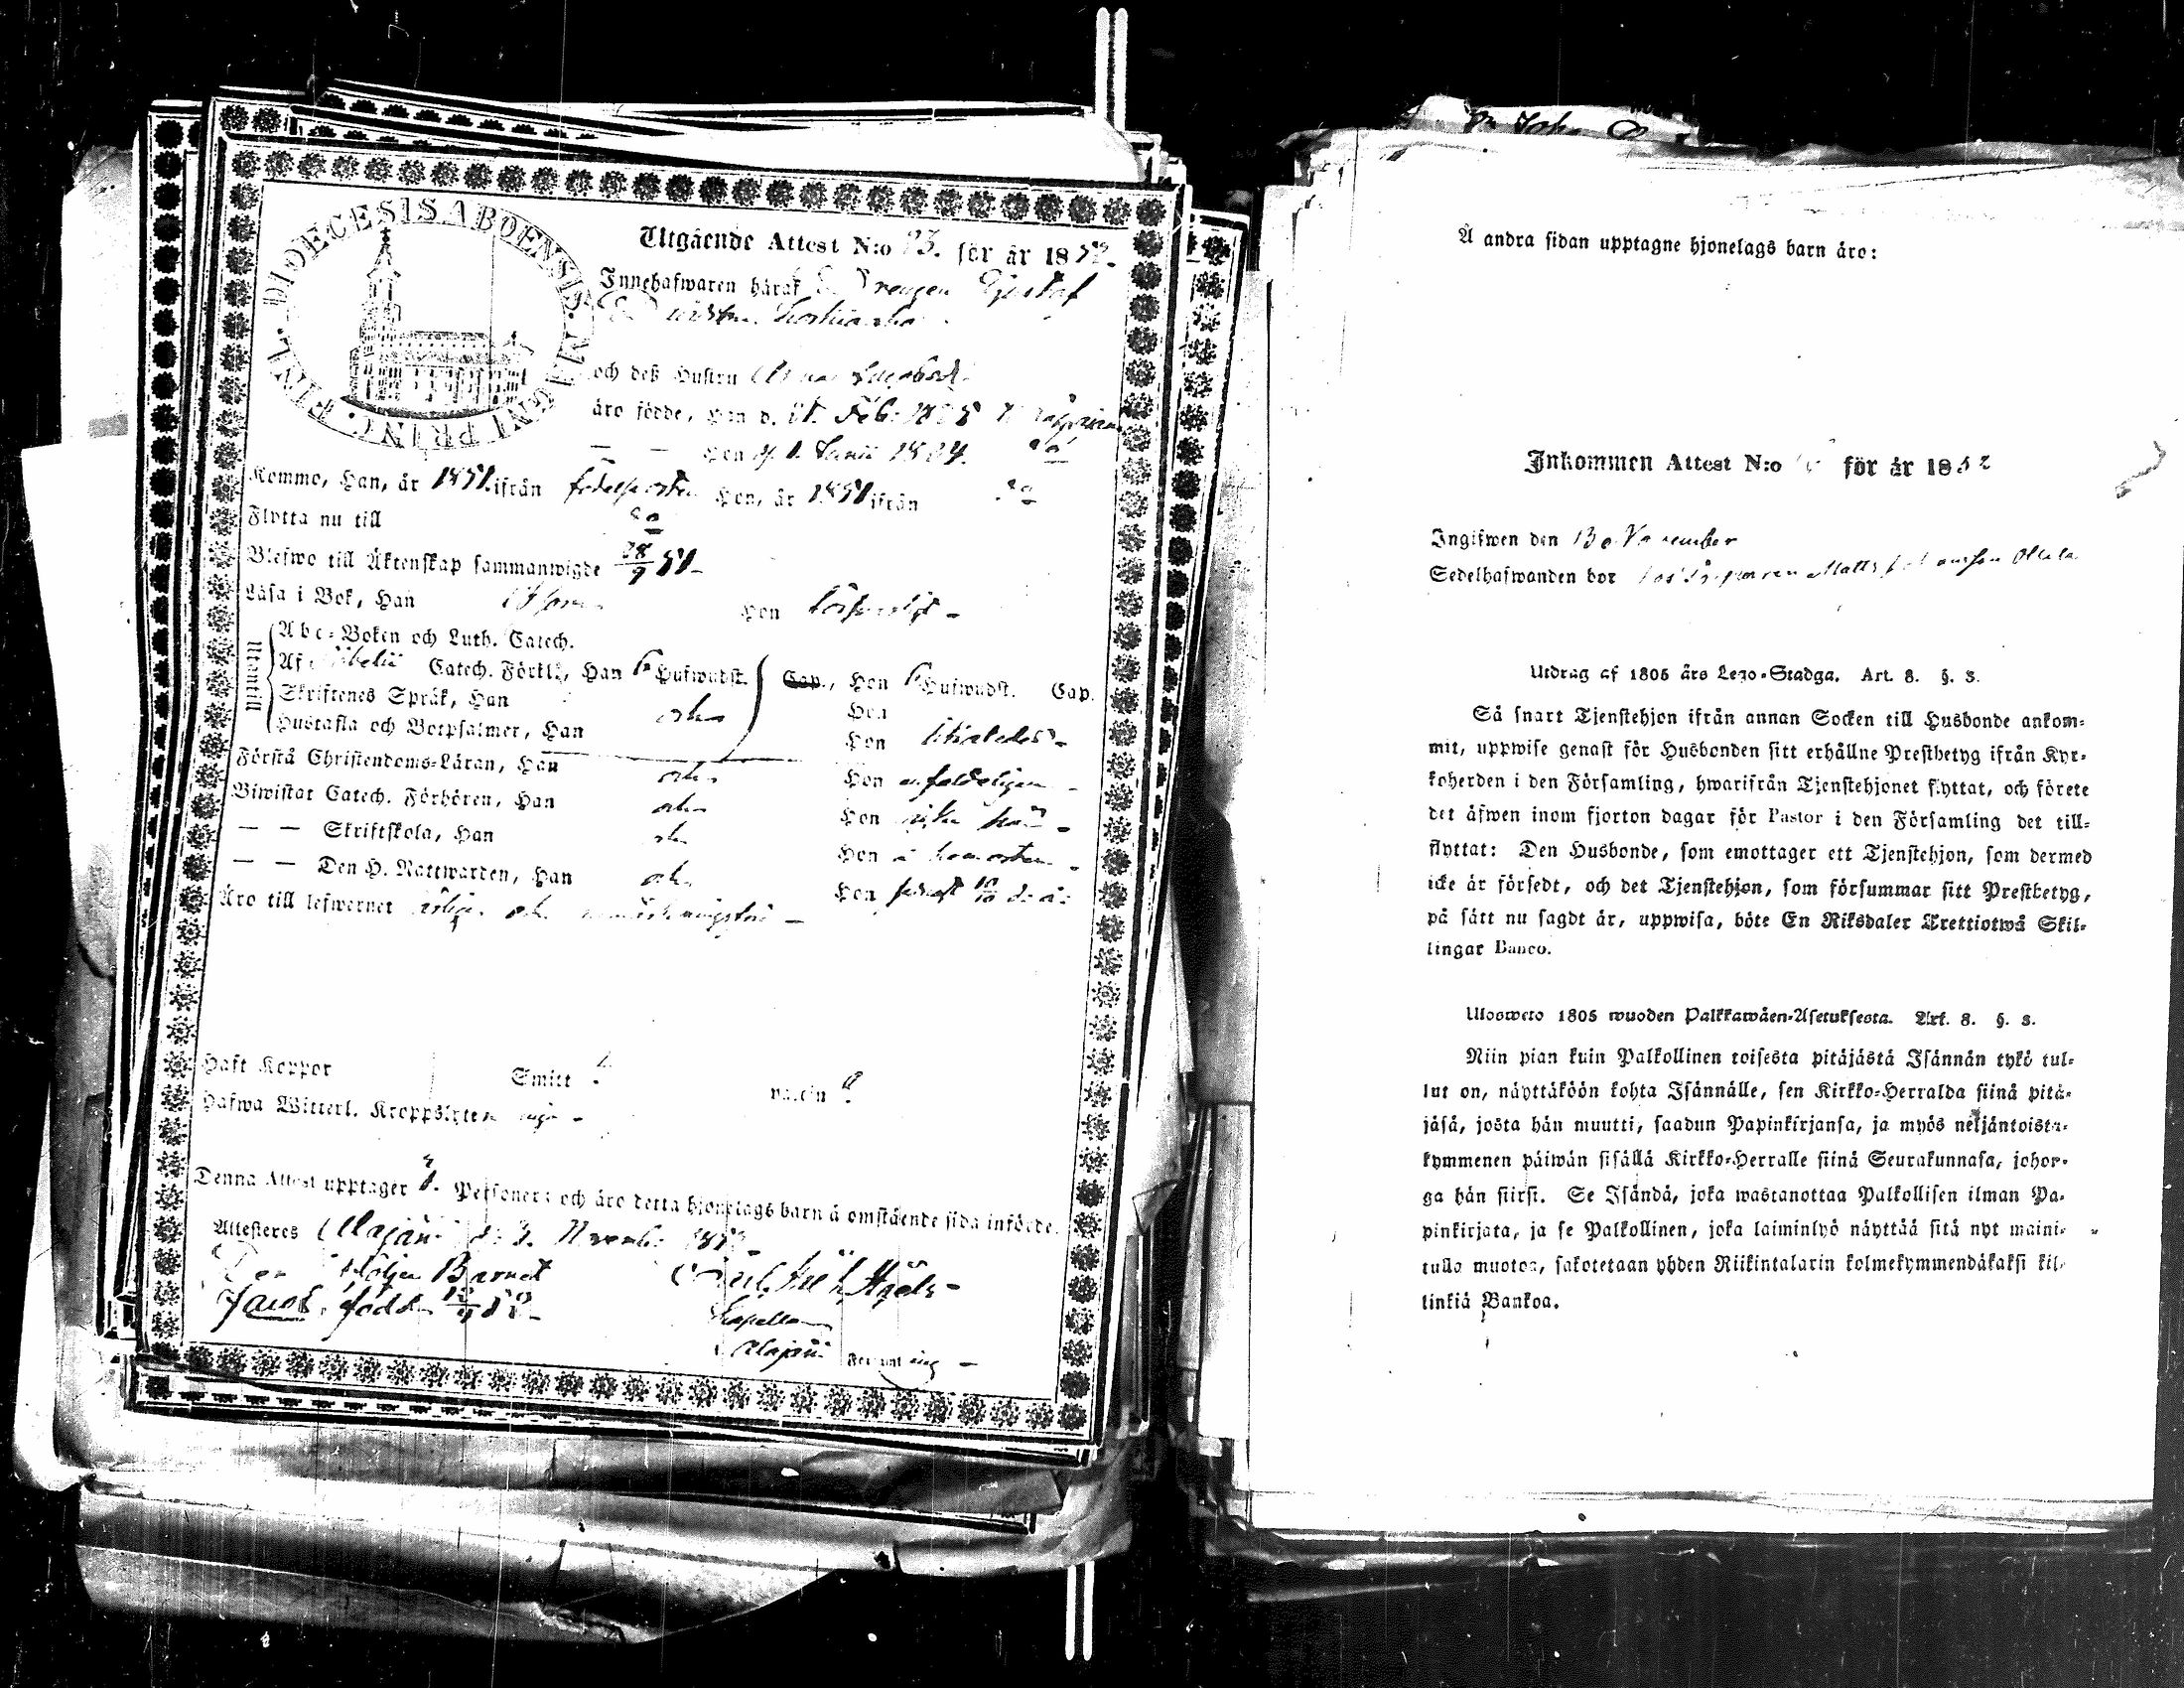 DIOECESIS ABOENSIS. MAGNI PRINC. FINL.
Utgående Attest N:o 23. för år 1852.
Innehafwaren häraf Drengen Gustaf
och deß Hustru
äro födde, Han d. 21. Feb: 1828
— — Hon d. 1. Junii 1824. do
Kommo, Han, år 1851 ifrån Hon, år 1851 ifrån do
Flytta nu till do
Blefwo till Äktenskap sammanwigde 28/9 51-
Läsa i Bok, Han Hon försvarligt -
Utantill
Abc-Boken och Luth. Catech.
Af Catech. Förkl:, Han 6 Hufwudst. Cap., Hon 6 Hufwudst. Cap.
Skriftenes Språk, Han Hon
Hustafla och Botpsalmer, Han och Hon likaledes -
Förstå Christendoms-Läran, Han och Hon enfaldeligen -
Biwistat Catech. Förhören, Han och Hon -
— — Skriftskola, Han och Hon
— — Den H. Nattwarden, Han och Hon senast 10/10 d. å.
Äro till lefwernet ärlige och -
Haft Koppor Smitt Vaccin
Hafwa Witterl. Kroppslyten inga -
Denna Attest upptager 3. Personer: och äro detta hjonelags barn å omstående sida införde.
Attesteres Alajärvi d. 3. Novemb. 1852
följer Barnet
Jacob, född
Kapellan
Alajärvi Församling -
Å andra sidan upptagne hjonelags barn äro:
Inkommen Attest N:o för år 1852
Ingifwen den 13 November
Sedelhafwanden bor hos Matts Johansson
Utdrag af 1805 års Lego-Stadga. Art. 8. §. 3.
Så snart Tjenstehjon ifrån annan Socken till Husbonde ankom-
mit, uppwise genast för Husbonden sitt erhållne Prestbetyg ifrån Kyr-
koherden i den Församling, hwarifrån Tjenstehjonet flyttat, och förete
det äfwen inom fjorton dagar för Pastor i den Församling det till-
flyttat: Den Husbonde, som emottager ett Tjenstehjon, som dermed
icke är försedt, och det Tjenstehjon, som försummar sitt Prestbetyg,
på sätt nu sagdt är, uppwisa, böte En Riksdaler Trettiotwå Skil-
lingar Banco.
Ulosweto 1805 wuoden Palkkawäen-Asetuksesta. Art. 8. §. 3.
Niin pian kuin Palkollinen toisesta pitäjästä Isännän tykö tul-
lut on, näyttäköön kohta Isännälle, sen Kirkko-Herralda siinä pitä-
jäsä, josta hän muutti, saadun Papinkirjansa, ja myös neljäntoista-
kymmenen päiwän sisällä Kirkko-Herralle siinä Seurakunnasa, johon-
ga hän siirsi. Se Isändä, joka wastanottaa Palkollisen ilman Pa-
pinkirjata, ja se Palkollinen, joka laiminlyö näyttää sitä nyt maini-
tulla muotoa, sakotetaan yhden Riikintalarin kolmekymmendäkaksi kil-
linkiä Bankoa.